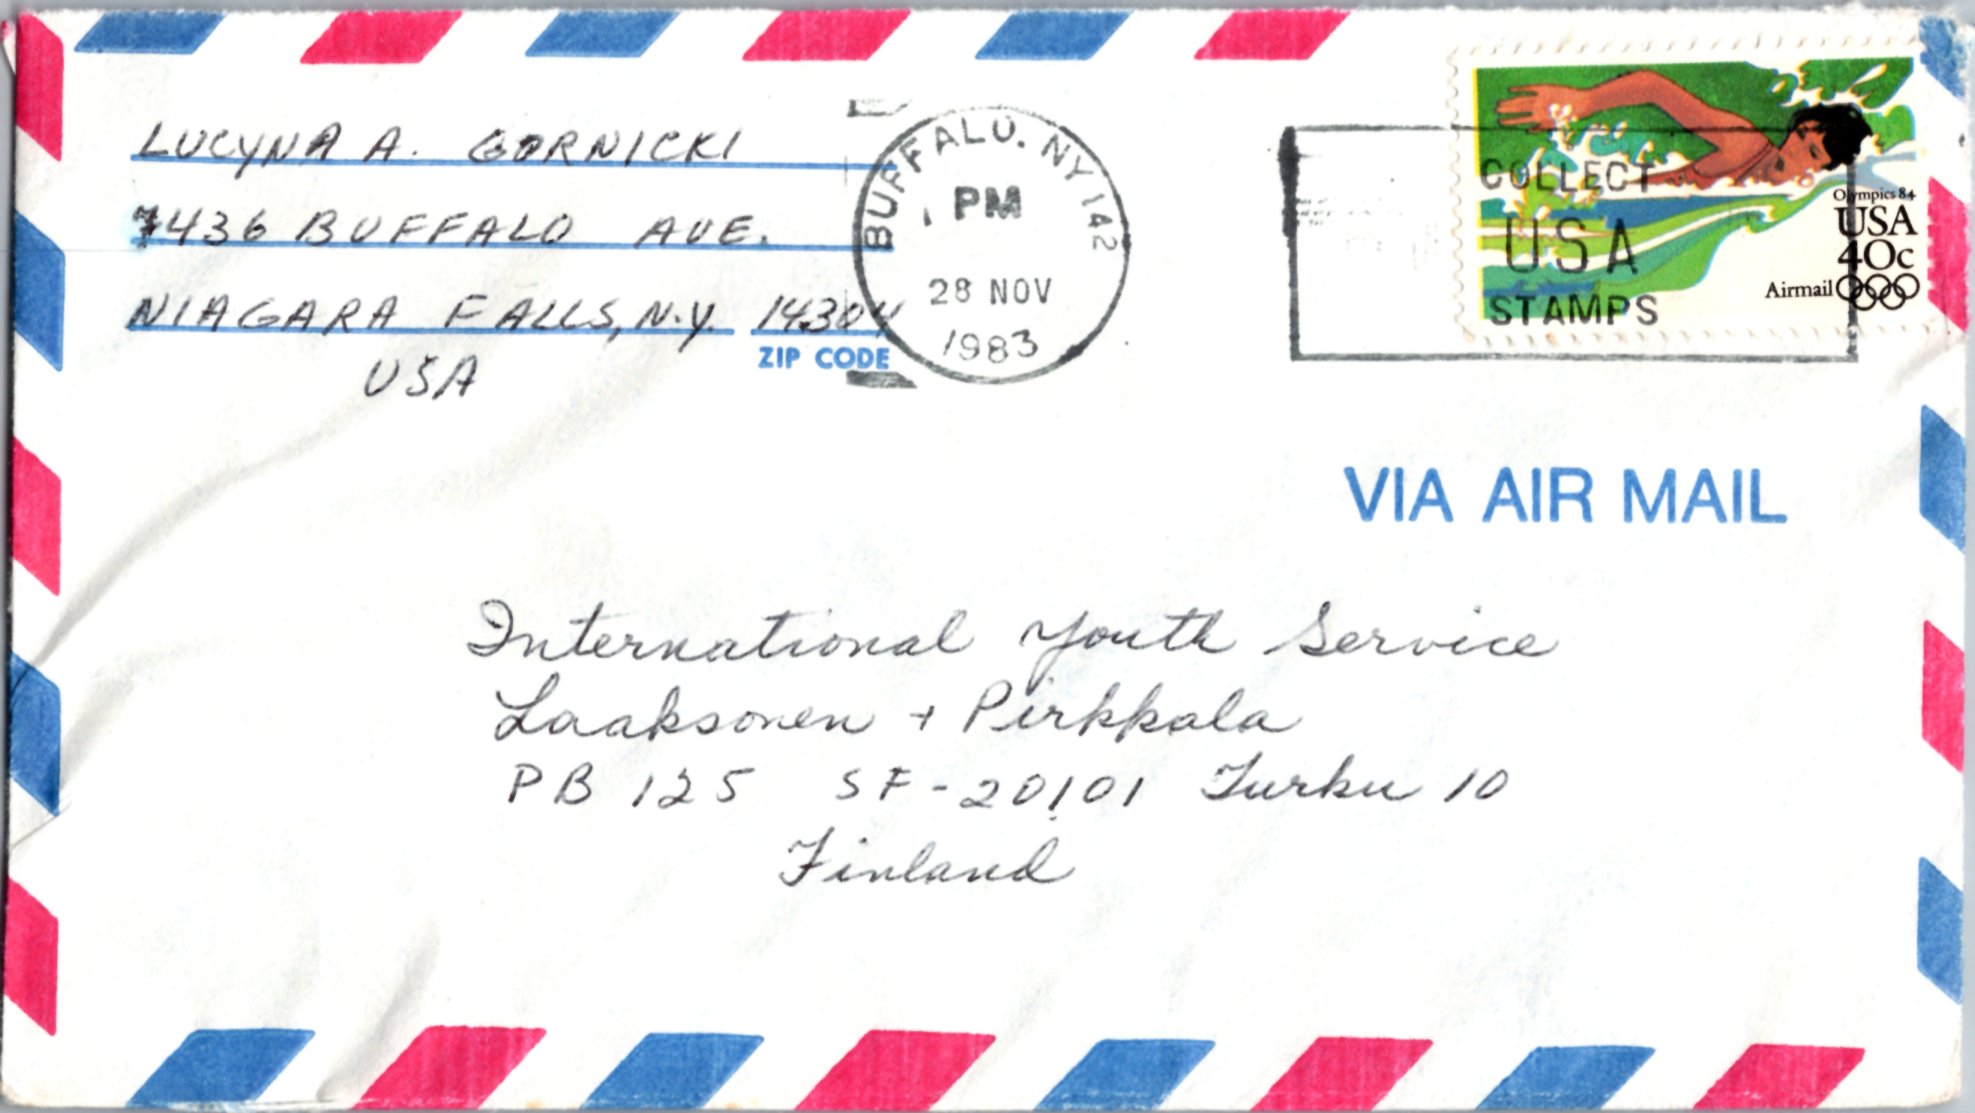 LUCYNA A. GORNICKI
7436 BUFFALO AVE.
NIAGARA FALLS, N.Y. 14304
ZIP CODE
USA
BUFFALO, NY 142
PM
28 NOV
1983
COLLECT
USA
STAMPS
Olympics 84
USA
40c
Airmail
VIA AIR MAIL
International Youth Service
Laaksonen + Pirkkala
PB 125 SF-20101 Turku 10
Finland